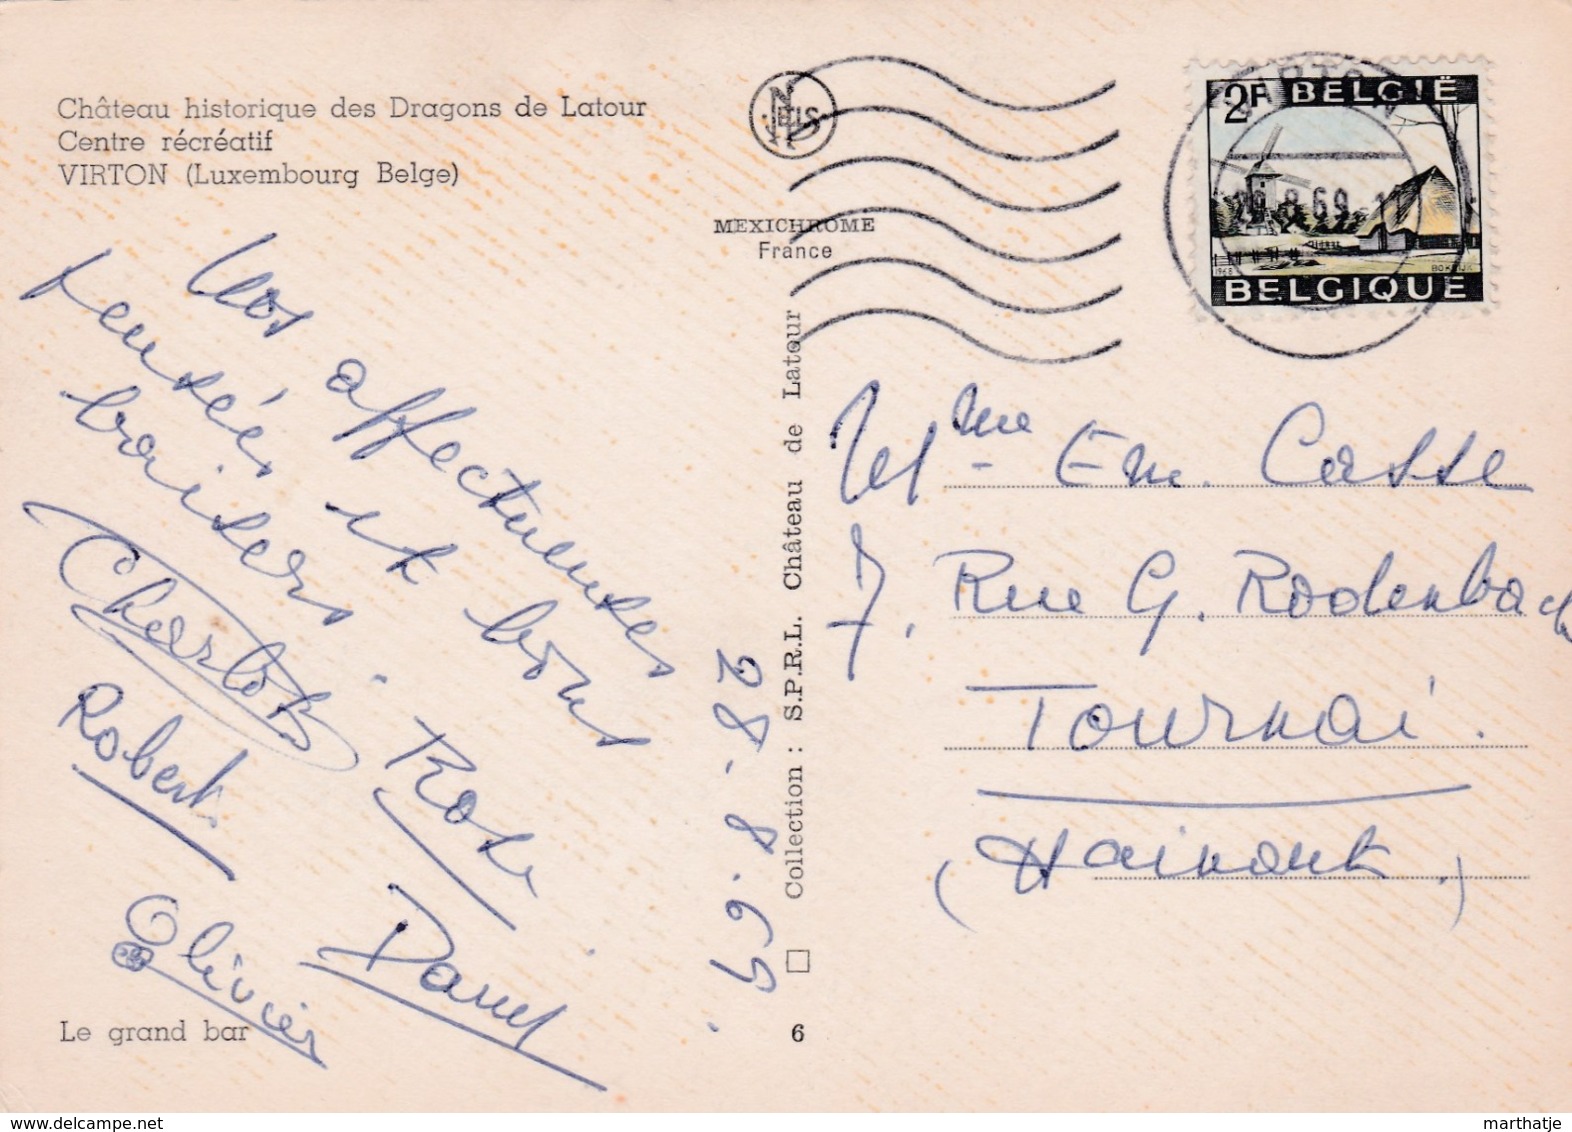 Château historique des Dragons de Latour
Centre récréatif
VIRTON (Luxembourg Belge)
Nos affectueuses
pensées et bons
baisers.
Robert
Rose
Olivier
Daniel
28.8.69.
Le grand bar
NELS
MEXICHROME
France
Collection : S.P.R.L. Château de Latour
6
VIRTON
8 69
2F BELGIË
1968
BOKRIJK
BELGIQUE
Mme Em. Casse
7. Rue G. Rodenbach
Tournai.
(Hainaut.)
delcampe.net
marthatje